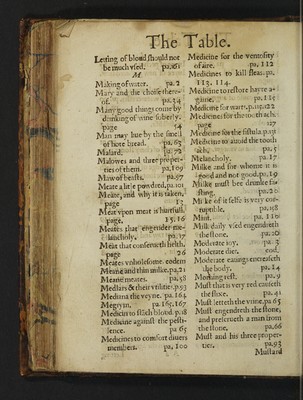 The Table.
Letting of bloud should not
be much vsed.
M
Making of water. pa.2
Mary and the
of. pa.34
Many good things come by
drinking of wine soberly.
page 54
Man may liue by the smell
of hote bread. pa.63
Malard. pa.72
Malowes and three proper-
ties of them. pa.109
Maw of beasts. pa.97
Meate a litle powdred,
Meate, and why it is taken,
page 13
Meat vpon meat is hurtfull,
page. 15.16
Meates that engender me-
lancholy. pa.17
Meat that conserueth helth,
page 26
Meates vnholesome
Meane and thin milke. pa.21
Meane meates. pa.58
Medlars & their vtilitie. p.93
Mediana the veyne. pa.164
Megrym. pa.165,167
Medicin to slach bloud. p.18
Medicine against the pesti-
lence. pa 65
Medicines to comfort diuers
members. pa.100
Medicine for the ventosity
of aire. pa.112
Medicines to kill fleas. pa.
113. 114.
Medicine to restore
Medicine for warts.
Medicines for the tooth ach
page 127
Medicine for the fistula.
Medicine to auoid the tooth
ach. pa.5
Melancholy. pa.17
Milke and for whome it is
good and not good. pa.19
Milke must bee drunke fa-
sting. pa.20
Milke of it selfe is very cor-
ruptible. pa.58
Mint. pa.110
Milk daily vsed engendreth
the stone. pa.20
Moderate ioy. pa.3
Moderate diet. eod.
Moderate eatings encreaseth
the body. pa.14
Morning rest. pa.9
Must that is very red causeth
the flixe. pa.41
Must letteth the vrine. pa.65
Must engendreth the stone,
and preserueth a man from
the stone. pa.66
Must and his three proper-
ties. pa.93
Mustard